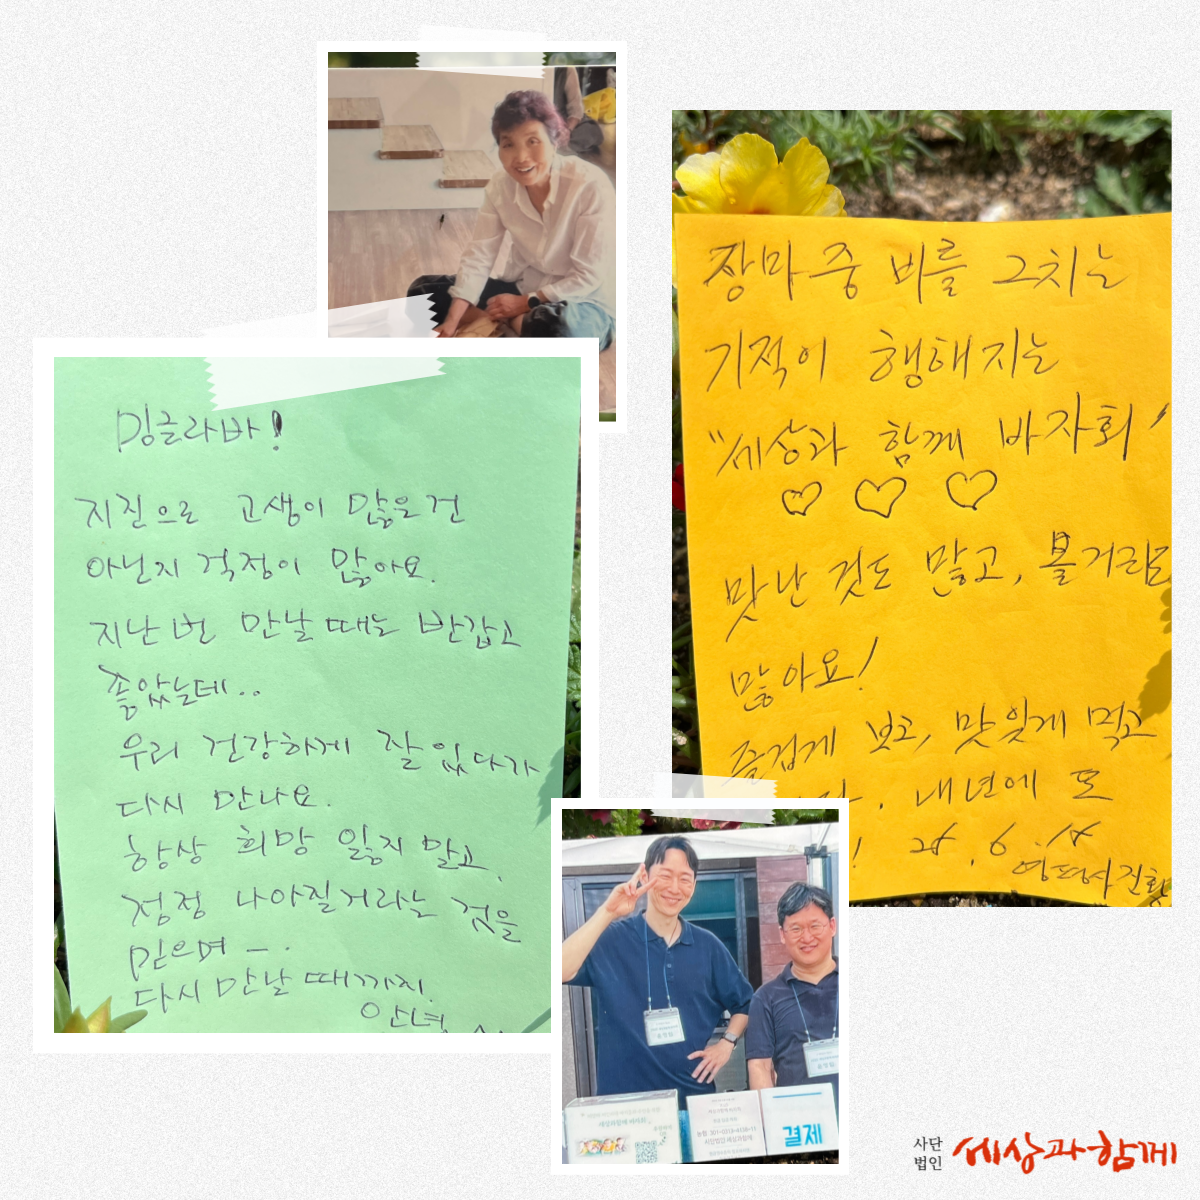 밍글라바!
지진으로 고생이 많은건
아닌지 걱정이 많아요.
지난번 만날때는 반갑고
좋았는데..
우리 건강하게 잘 있다가
다시 만나요.
항상 희망 잃지 말고,
점점 나아질거라는 것을
믿으며 ㅡ.
다시 만날 때까지.
안녕
장마중 비를 그치는
기적이 행해지는
"세상과 함께 바자회"
♡ ♡ ♡
맛난 것도 많고, 볼거리도
많아요!
즐겁게 보고, 맛있게 먹고,
다. 내년에 또
! 6.14
세상과함께 바자회
농협 301-0313-4156-11
사단법인 세상과함께
결제
사단
법인
세상과함께